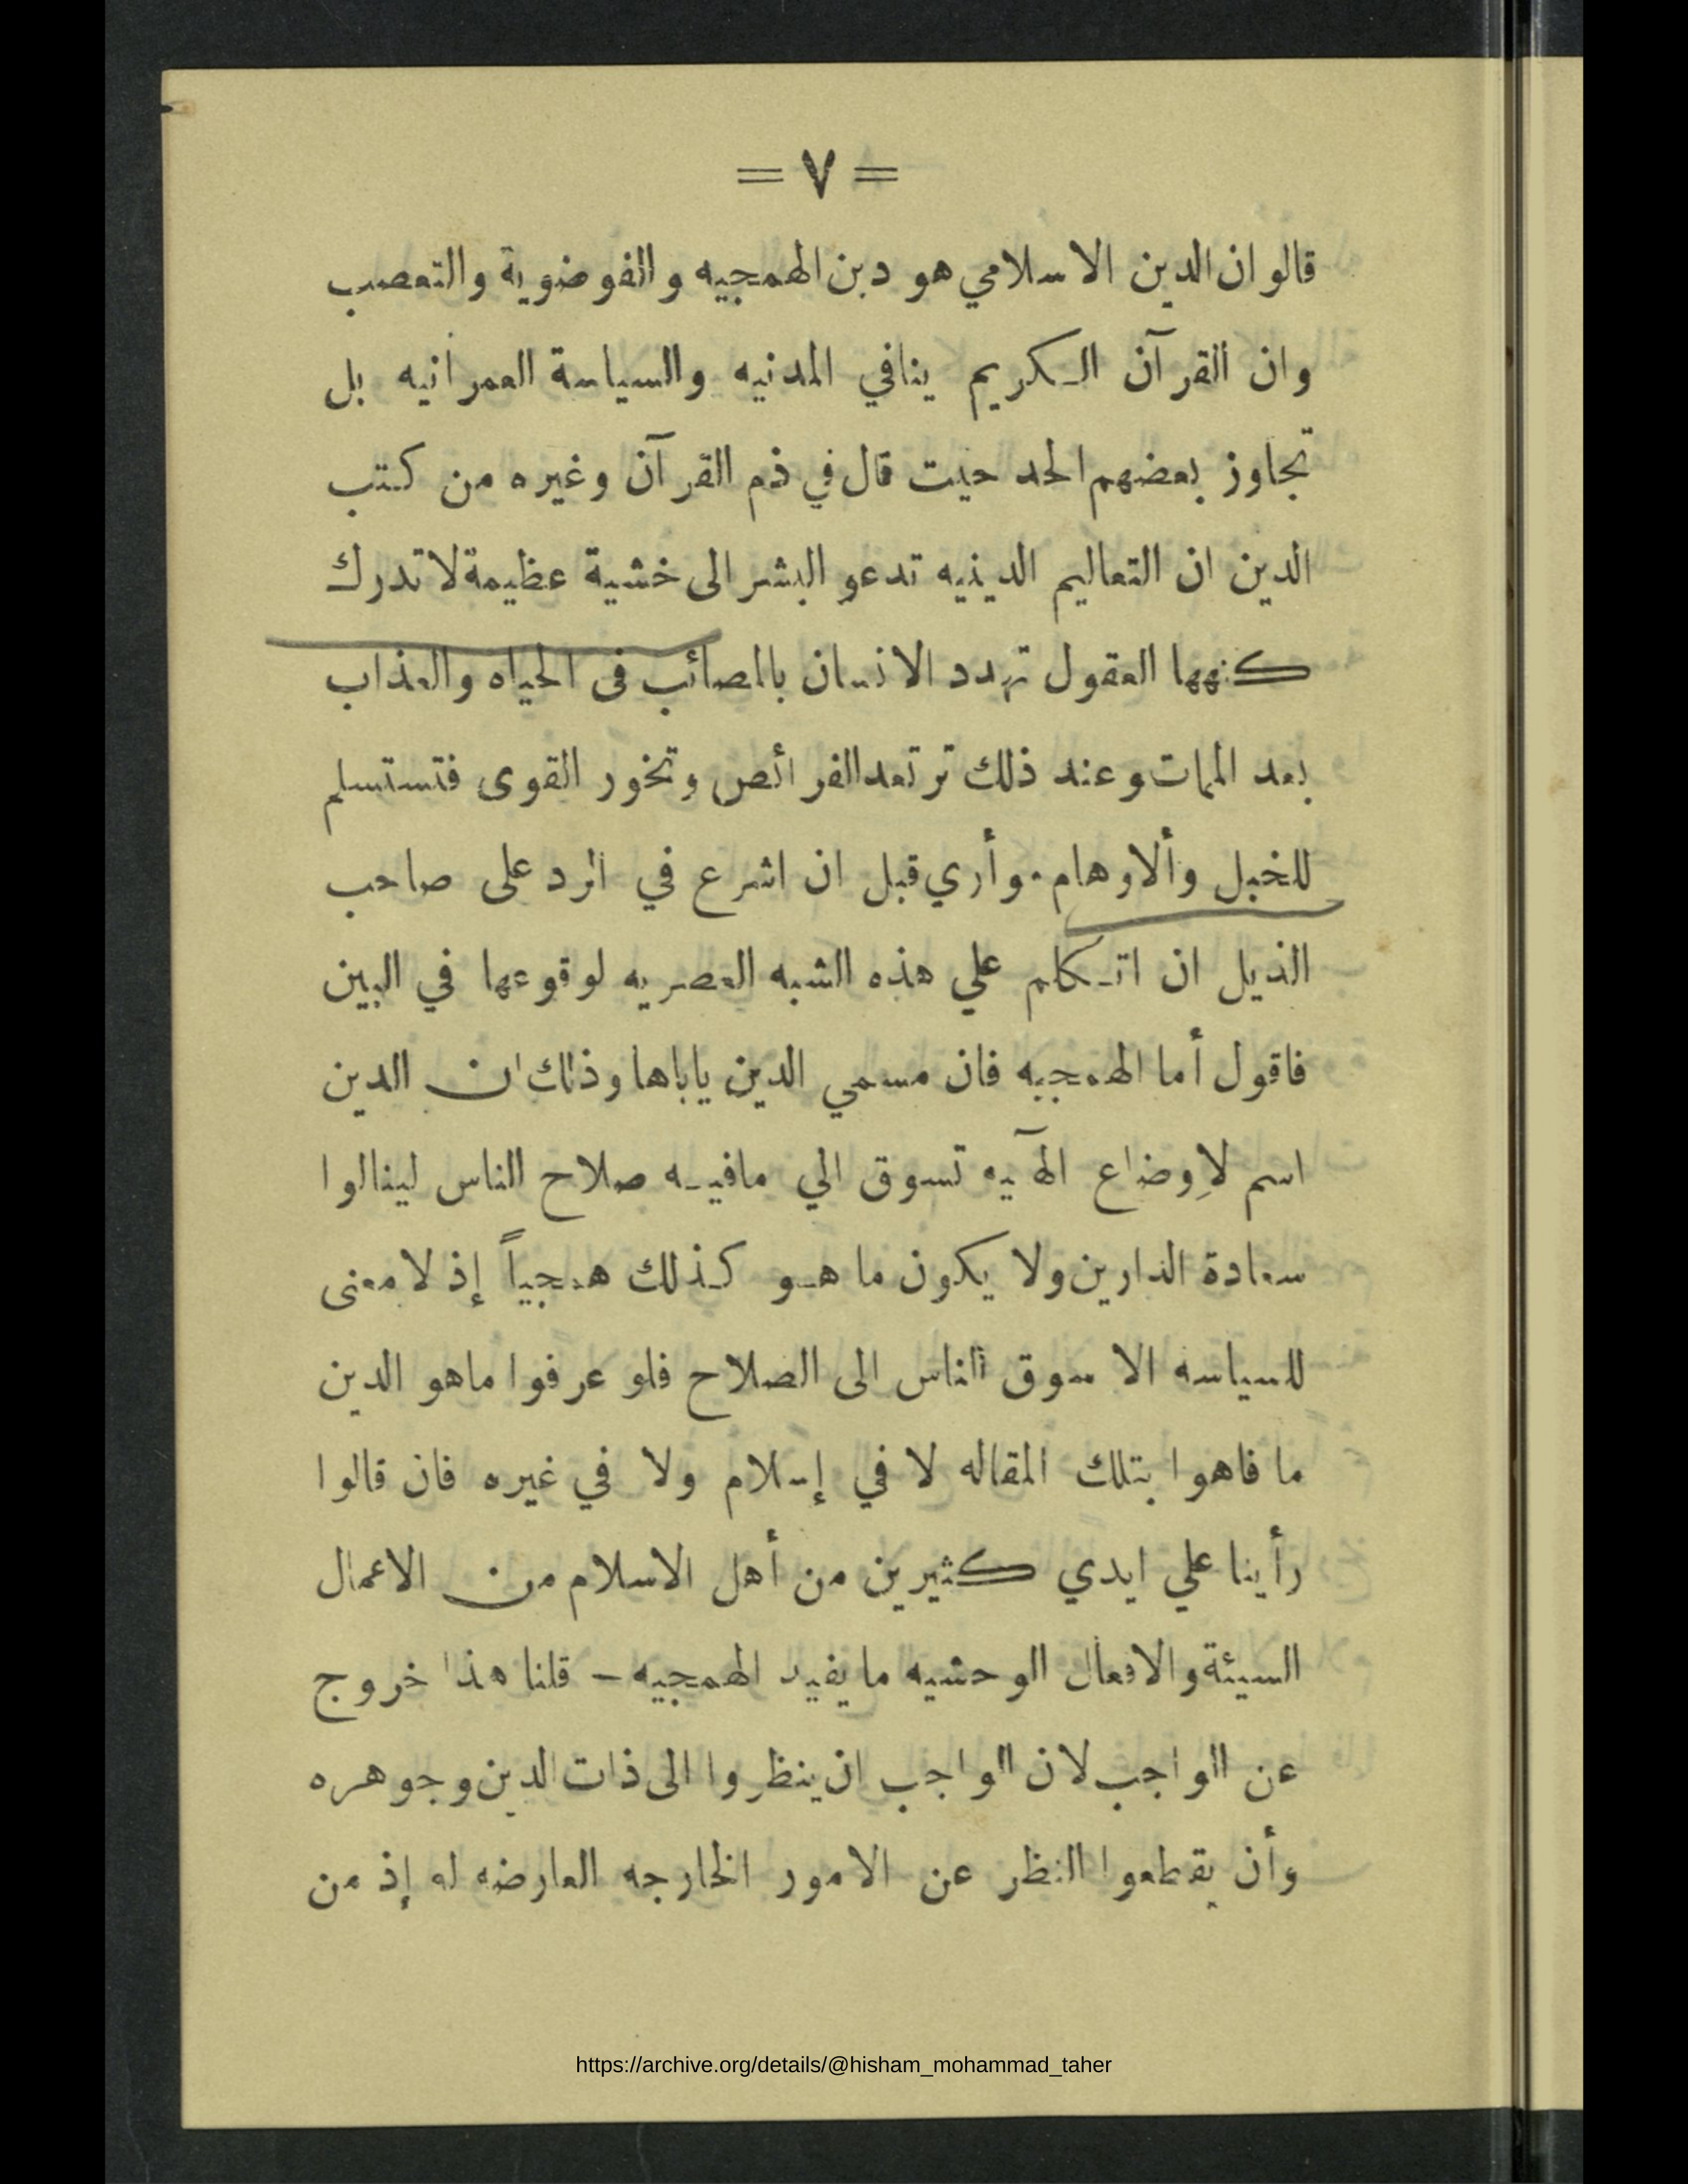 = ٧ =
قالوان الدين الاسلامي هو دين الهمجيه والفوضوية والتعصب
وان القرآن الكريم ينافي المدنيه والسياسة العمرانيه بل
تجاوز بعضهم الحد حيت قال في ذم القرآن وغيره من كتب
الدين ان التعاليم الدينيه تدعو البشر الى خشية عظيمة لا تدرك
كنهها العقول تهدد الانسان بالمصائب فى الحياه والعذاب
بعد الممات وعند ذلك ترتعد الفرائص وتخور القوى فتستسلم
للخبل وألاوهام. وأري قبل ان اشرع في الرد على صاحب
الذيل ان اتكلم علي هذه الشبه العصريه لوقوعها في البين
فاقول أما الهمجيه فان مسمي الدين ياباها وذلك ان الدين
اسم لاِوضاع الهآيه تسوق الي مافيه صلاح الناس لينالوا
سعادة الدارين ولا يكون ما هو كذلك همجياً إذ لا معنى
للسياسه الا سوق الناس الى الصلاح فلو عرفوا ماهو الدين
ما فاهوا بتلك المقاله لا في إسلام ولا في غيره فان قالوا
رأينا علي ايدي كثيرين من أهل الاسلام من الاعمال
السيئة والافعال الوحشيه ما يفيد الهمجيه – قلنا هذا خروج
عن الواجب لان الواجب ان ينظروا الى ذات الدين وجوهره
وأن يقطعوا النظر عن الامور الخارجه العارضه له إذ من
https://archive.org/details/@hisham_mohammad_taher